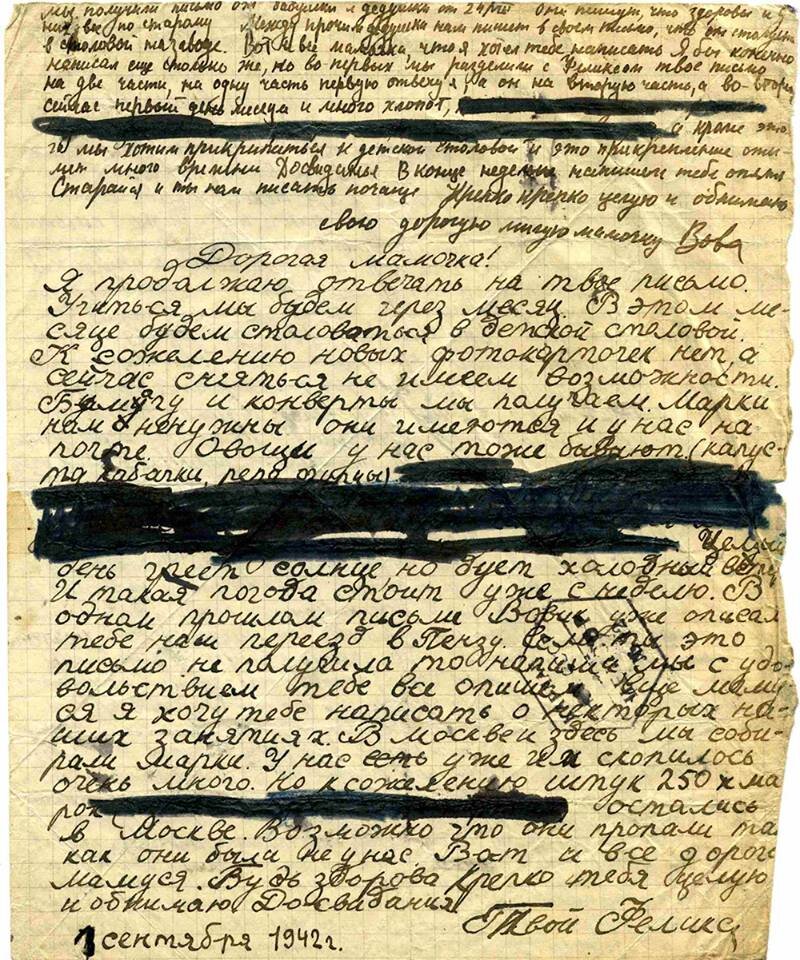 мы получили письмо от бабушки и дедушки от 24/VIII они пишут, что здоровы и у
них все по старому Между прочим дедушка нам пишет в своем письмо, что он
в столовой та заводе. Вот и все мамочка, что я хотел тебе написать Я бы конечно
написал еще столько же, но во первых мы разделили с Феликсом твое письмо
на две части, на одну часть первую отвечу я, а он на вторую часть, а во-вторых
сейчас первый день месяца и много хлопот,
и кроме это-
го мы хотим прикрепиться к детской столовой и это прикрепление оты-
мет много времени Досвиданья В конце недели напишем тебе опять
Старайся и ты нам писать почаще Крепко крепко целую и обнимаю
свою дорогую милую мамочку Вова
Дорогая мамочка!
Я продолжаю отвечать на твое письмо.
Учиться мы будем через месяц. В этом ме-
сяце будем столоваться в детской столовой.
К сожелению новых фотокарточек нет, а
сейчас сняться не имеем возможности.
Бумагу и конверты мы получаем. Марки
нам ненужны они имеются и у нас на
почте. Овощи у нас тоже бывают (капус-
та кабачки, репа, огурцы).
Целый
день греет солнце но дует халодный ветер
И такая погода стоит уже с неделю. В
одном прошлом письми Вовик уже описал
тебе наш переезд в Пензу. Если ты это
письмо не получила то напиши мы с удо-
вольствием тебе все опишем Еще маму-
ся я хочу тебе написать о некторых на-
ших занятиях. В Москве и здесь мы соби-
рали марки. У нас есть уже их скопилось
очень много. Но к сожелению штук 250 х ма
рок остались
в Москве. Возможно что они пропали та
как они были не у нас. Вот и все дорог
мамуся. Будь здорова Крепко тебя целую
и обнимаю Досвидания
Твой Феликс
1 сентября 1942 г.